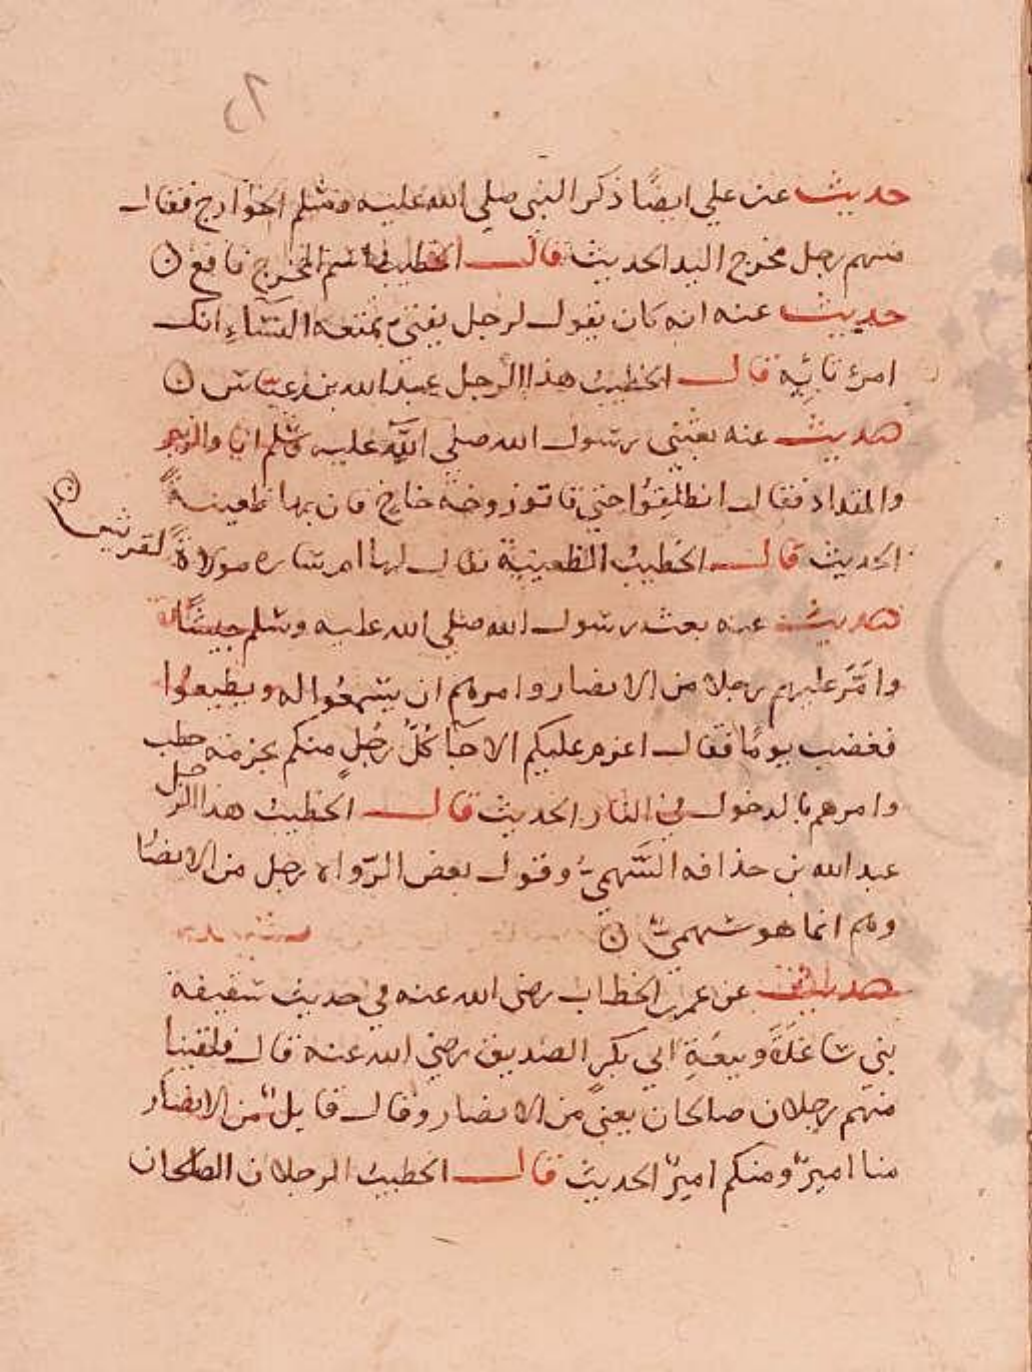 حديث عن علي ايضًا ذكر النبي صلى الله عليه وسلم الخوارج فقال
منهم رجل مخرج اليد الحديث قال الخطيب اسم المخرج نافع ه
حديث عنه انه كان يقول لرجل يفتي بمتعة النساء انك
امرؤ تايه قال الخطيب هذا الرجل عبد الله بن عباس ه
حديث عنه بعثني رسول الله صلى الله عليه وسلم انا والزبير
والمقداد فقال انطلقوا حتي تاتوا روضة خاخ فان بها ظعينة
الحديث قال الخطيب الظعينة يقال لها ام ساره مولاة لقريش ه
حديث عنه بعث رسول الله صلى الله عليه وسلم جيشًا
وامّر عليهم رجلا من الانصار وامرهم ان يسمعُوا له ويطيعوا
فغضب يومًا فقال اعزم عليكم الا جا كُلُّ رجُلٍ منكم بحزمة حطب
وامرهم بالدخول في النار الحديث قال الخطيبُ هذا الرجل
عبد الله بن حذافه السَّهميّ وقول بعض الرّواه رجل من الانصا
وهم انما هو سهميّ ه
حديث عن عمر بن الخطاب رضى الله عنه في حديث سقيفة
بني ساعدة وبيعةِ ابي بكر الصديق رضي الله عنه قال فلقينا
منهم رجلان صالحان يعني من الانصار وقال قايلٌ من الانصار
منا اميرٌ ومنكم اميرٌ الحديث قال الخطيبُ الرجلان الصالحان